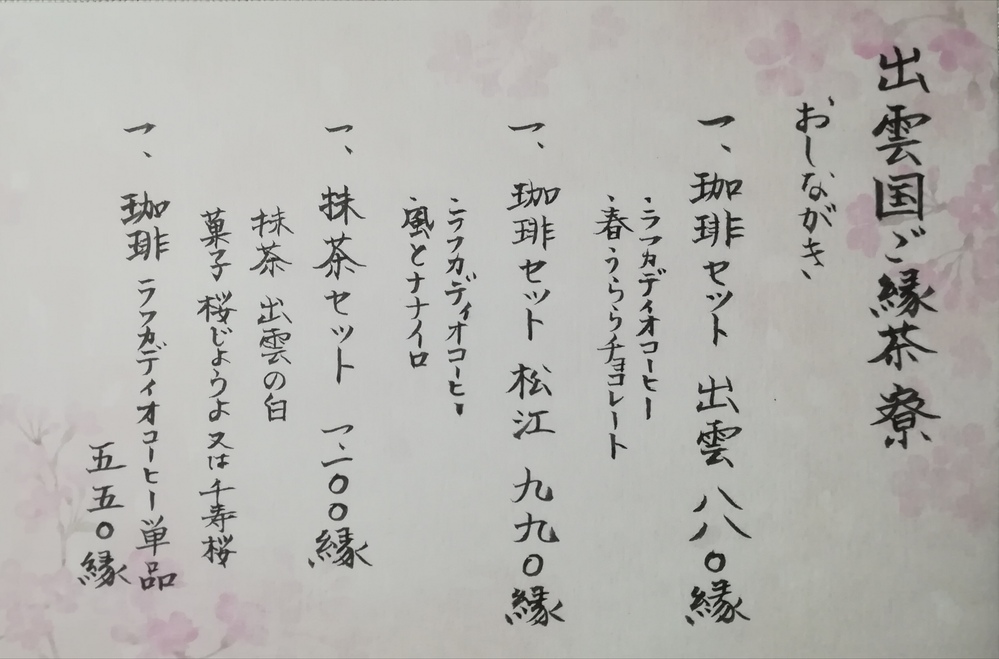 出雲国ご縁茶寮
おしながき
一、珈琲セット 出雲 八八〇縁
・ラフカディオコーヒー
・春うららチョコレート
一、珈琲セット 松江 九九〇縁
・ラフカディオコーヒー
・風とナナイロ
一、抹茶セット 一、二〇〇縁
抹茶 出雲の白
菓子 桜じょうよ又は千寿桜
一、珈琲 ラフカディオコーヒー単品
五五〇縁